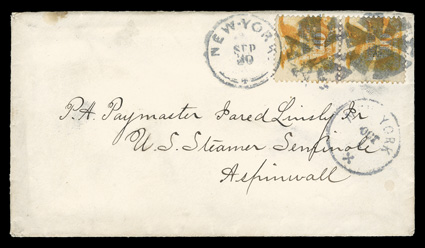 NEW-YORK
SEP
20
P.A. Paymaster Jared Linsly Jr
U.S. Steamer Seminole
Aspinwall
YORK
OCT